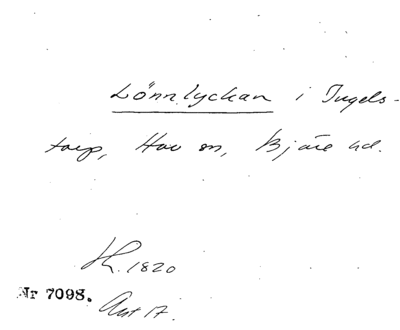 Lönnlyckan i Ingels-
torp, Hov sn, Bjäre hd.
H. 1820
Nr 7098. Avt 17.